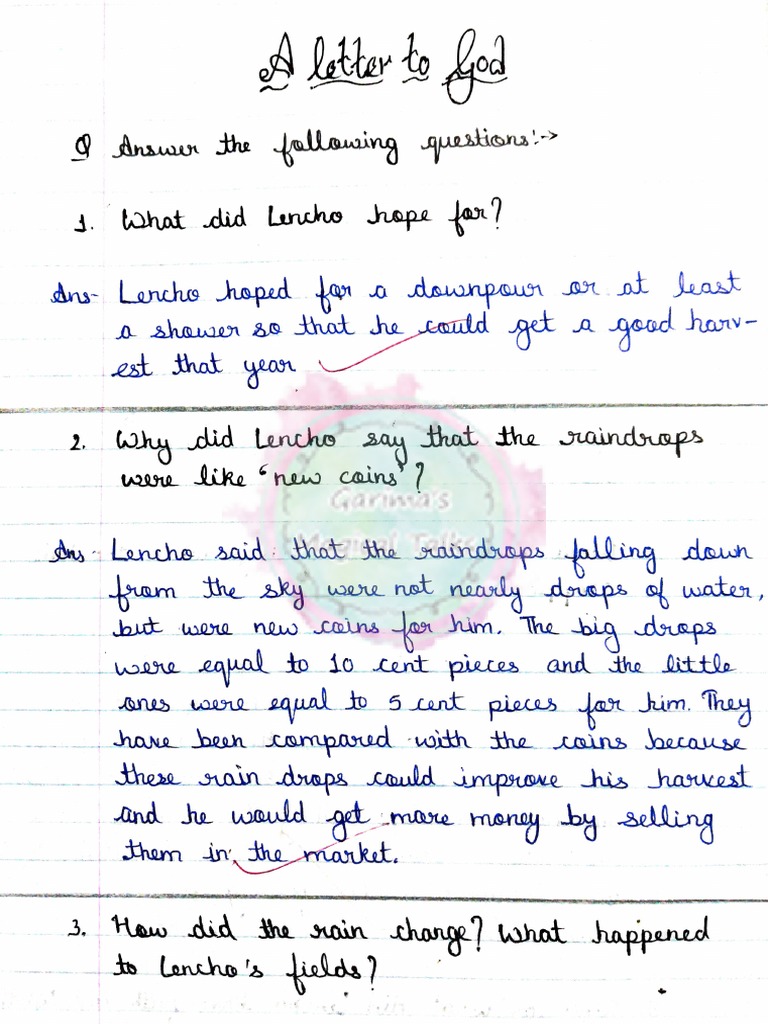 A letter to God
Q Answer the following questions:->
1. What did Lencho hope for?
Ans- Lencho hoped for a downpour or at least
a shower so that he could get a good harv-
est that year
2. Why did Lencho say that the raindrops
were like 'new coins'?
Garima's
Magical Talks
Ans - Lencho said that the raindrops falling down
from the sky were not nearly drops of water,
but were new coins for him. The big drops
were equal to 10 cent pieces and the little
ones were equal to 5 cent pieces for him. They
have been compared with the coins because
these rain drops could improve his harvest
and he would get more money by selling
them in the market.
3. How did the rain change? What happened
to Lencho's fields?